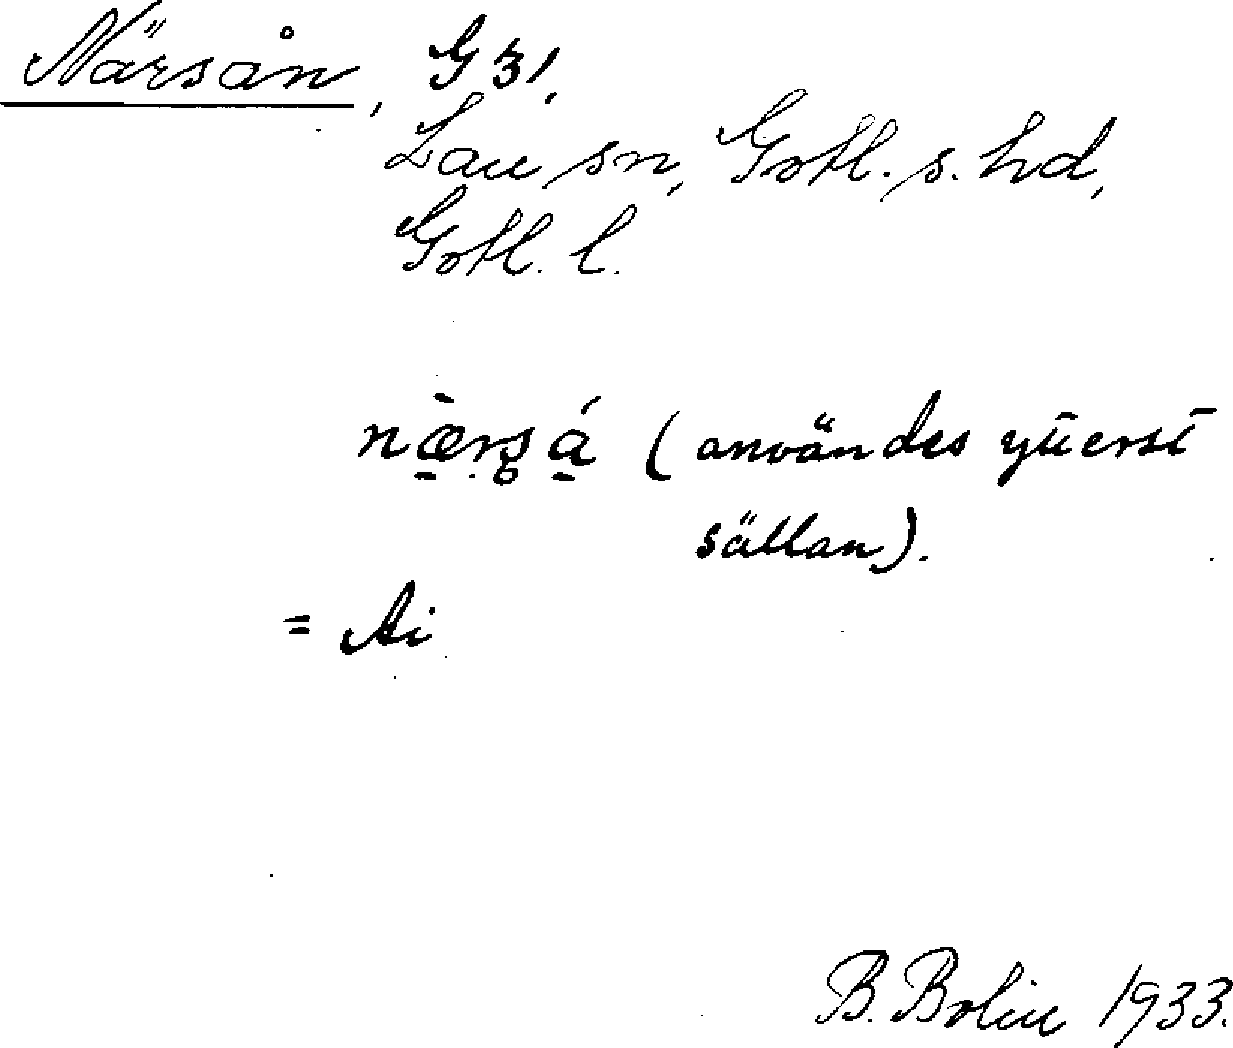 Närsån, G 31.
Lau sn, Gotl. s. hd,
Gotl. l.
næ̀rsá (användes ytterst
sällan).
= Ai
B. Bolin 1933.